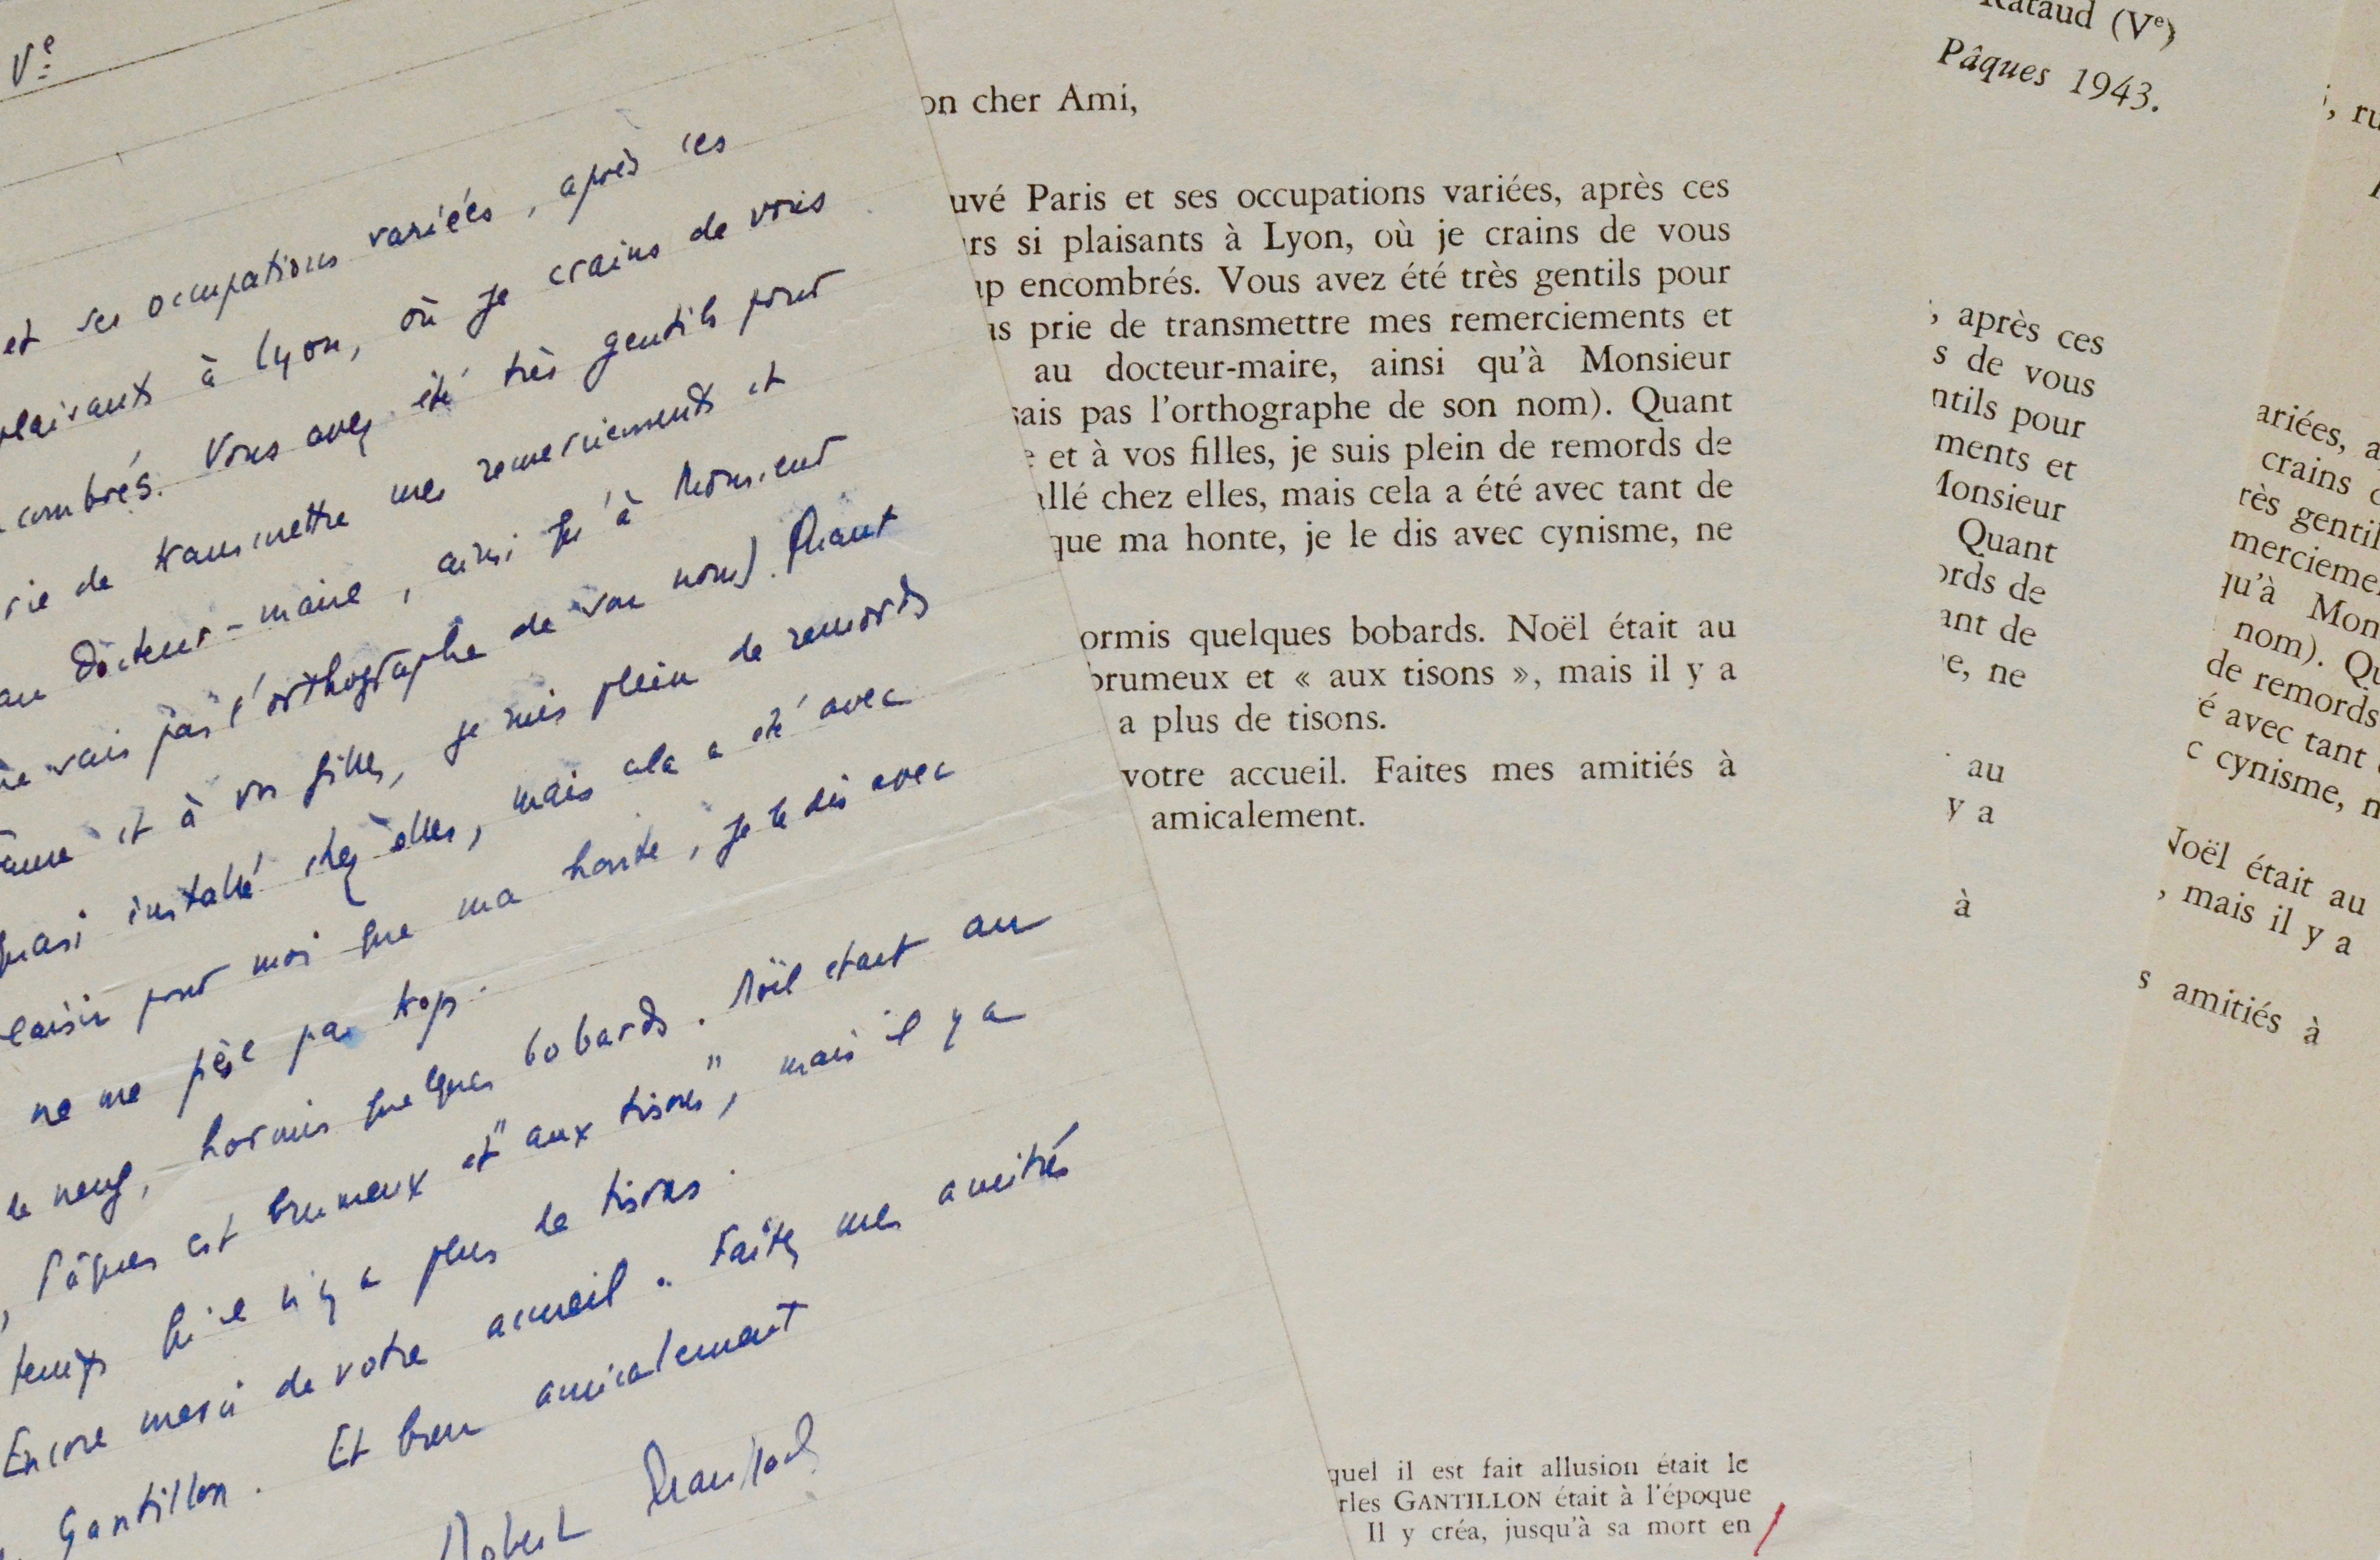 Ve
et ses occupations variées, après ces
plaisants à Lyon, où je crains de vous
combrés. Vous avez été très gentils pour
rie de transmettre mes remerciements et
au docteur-maire, ainsi qu'à Monsieur
ne sais pas l'orthographe de son nom). Quant
et à vos filles, je suis plein de remords
quasi installé chez elles, mais cela a été avec
laisir pour moi que ma honte, je le dis avec
ne me pèse pas trop.
de neuf, hormis quelques bobards. Noël était au
, Pâques est brumeux et "aux tisons", mais il y a
temps qu'il n'y a plus de tisons.
Encore merci de votre accueil. Faites mes amitiés
Gantillon. Et bien amicalement
Robert
on cher Ami,
uvé Paris et ses occupations variées, après ces
rs si plaisants à Lyon, où je crains de vous
p encombrés. Vous avez été très gentils pour
us prie de transmettre mes remerciements et
au docteur-maire, ainsi qu'à Monsieur
sais pas l'orthographe de son nom). Quant
e et à vos filles, je suis plein de remords de
allé chez elles, mais cela a été avec tant de
que ma honte, je le dis avec cynisme, ne
ormis quelques bobards. Noël était au
brumeux et « aux tisons », mais il y a
a plus de tisons.
votre accueil. Faites mes amitiés à
amicalement.
quel il est fait allusion était le
rles GANTILLON était à l'époque
Il y créa, jusqu'à sa mort en
Rataud (Ve)
Pâques 1943.
, après ces
s de vous
ntils pour
ments et
Monsieur
Quant
ords de
ant de
e, ne
au
y a
à
, ru
ariées, a
crains d
rès gentil
merciemen
qu'à Mon
nom). Qu
de remords
é avec tant
c cynisme, n
Noël était au
, mais il y a
s amitiés à